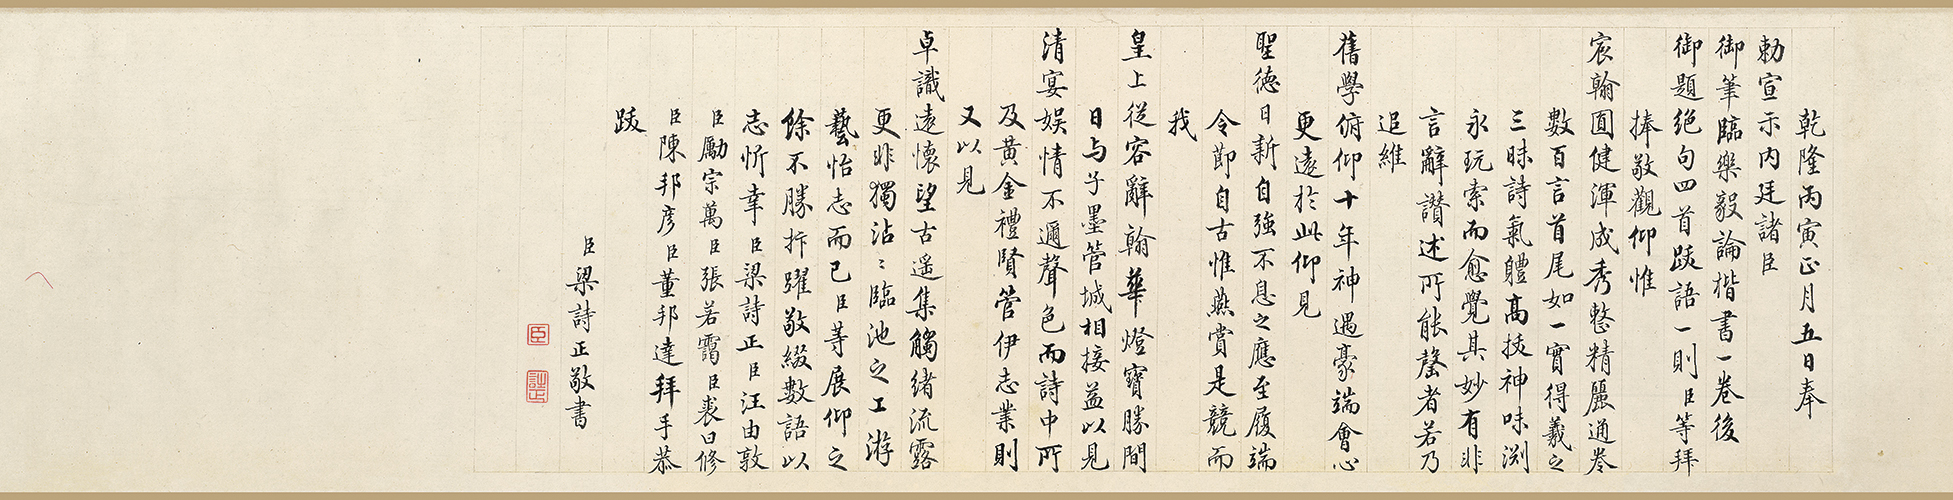 乾隆丙寅正月五日奉
勅宣示内廷諸臣
御筆臨樂毅論楷書一卷後
御題絶句四首跋語一則臣等拜
捧敬觀仰惟
宸翰圓健渾成秀整精麗通卷
數百言首尾如一實得羲之
三昧詩氣體高技神味淵
永玩索而愈覺其妙有非
言辭讚述所能罄者若乃
追維
舊學俯仰十年神遇豪端會心
更遠於此仰見
聖德日新自強不息之應至履端
令節自古惟燕賞是競而
我
皇上從容辭翰華燈寶勝間
日与子墨管城相接益以見
清宴娱情不邇聲色而詩中所
及黄金禮賢管伊志業則
又以見
卓識遠懷望古遥集觸緒流露
更非獨沾〻臨池之工游
藝怡志而已臣等展仰之
餘不勝抃躍敬綴數語以
志忻幸臣梁詩正臣汪由敦
臣勵宗萬臣張若靄臣裘曰修
臣陳邦彦臣董邦達拜手恭
跋
臣梁詩正敬書
臣
詩正